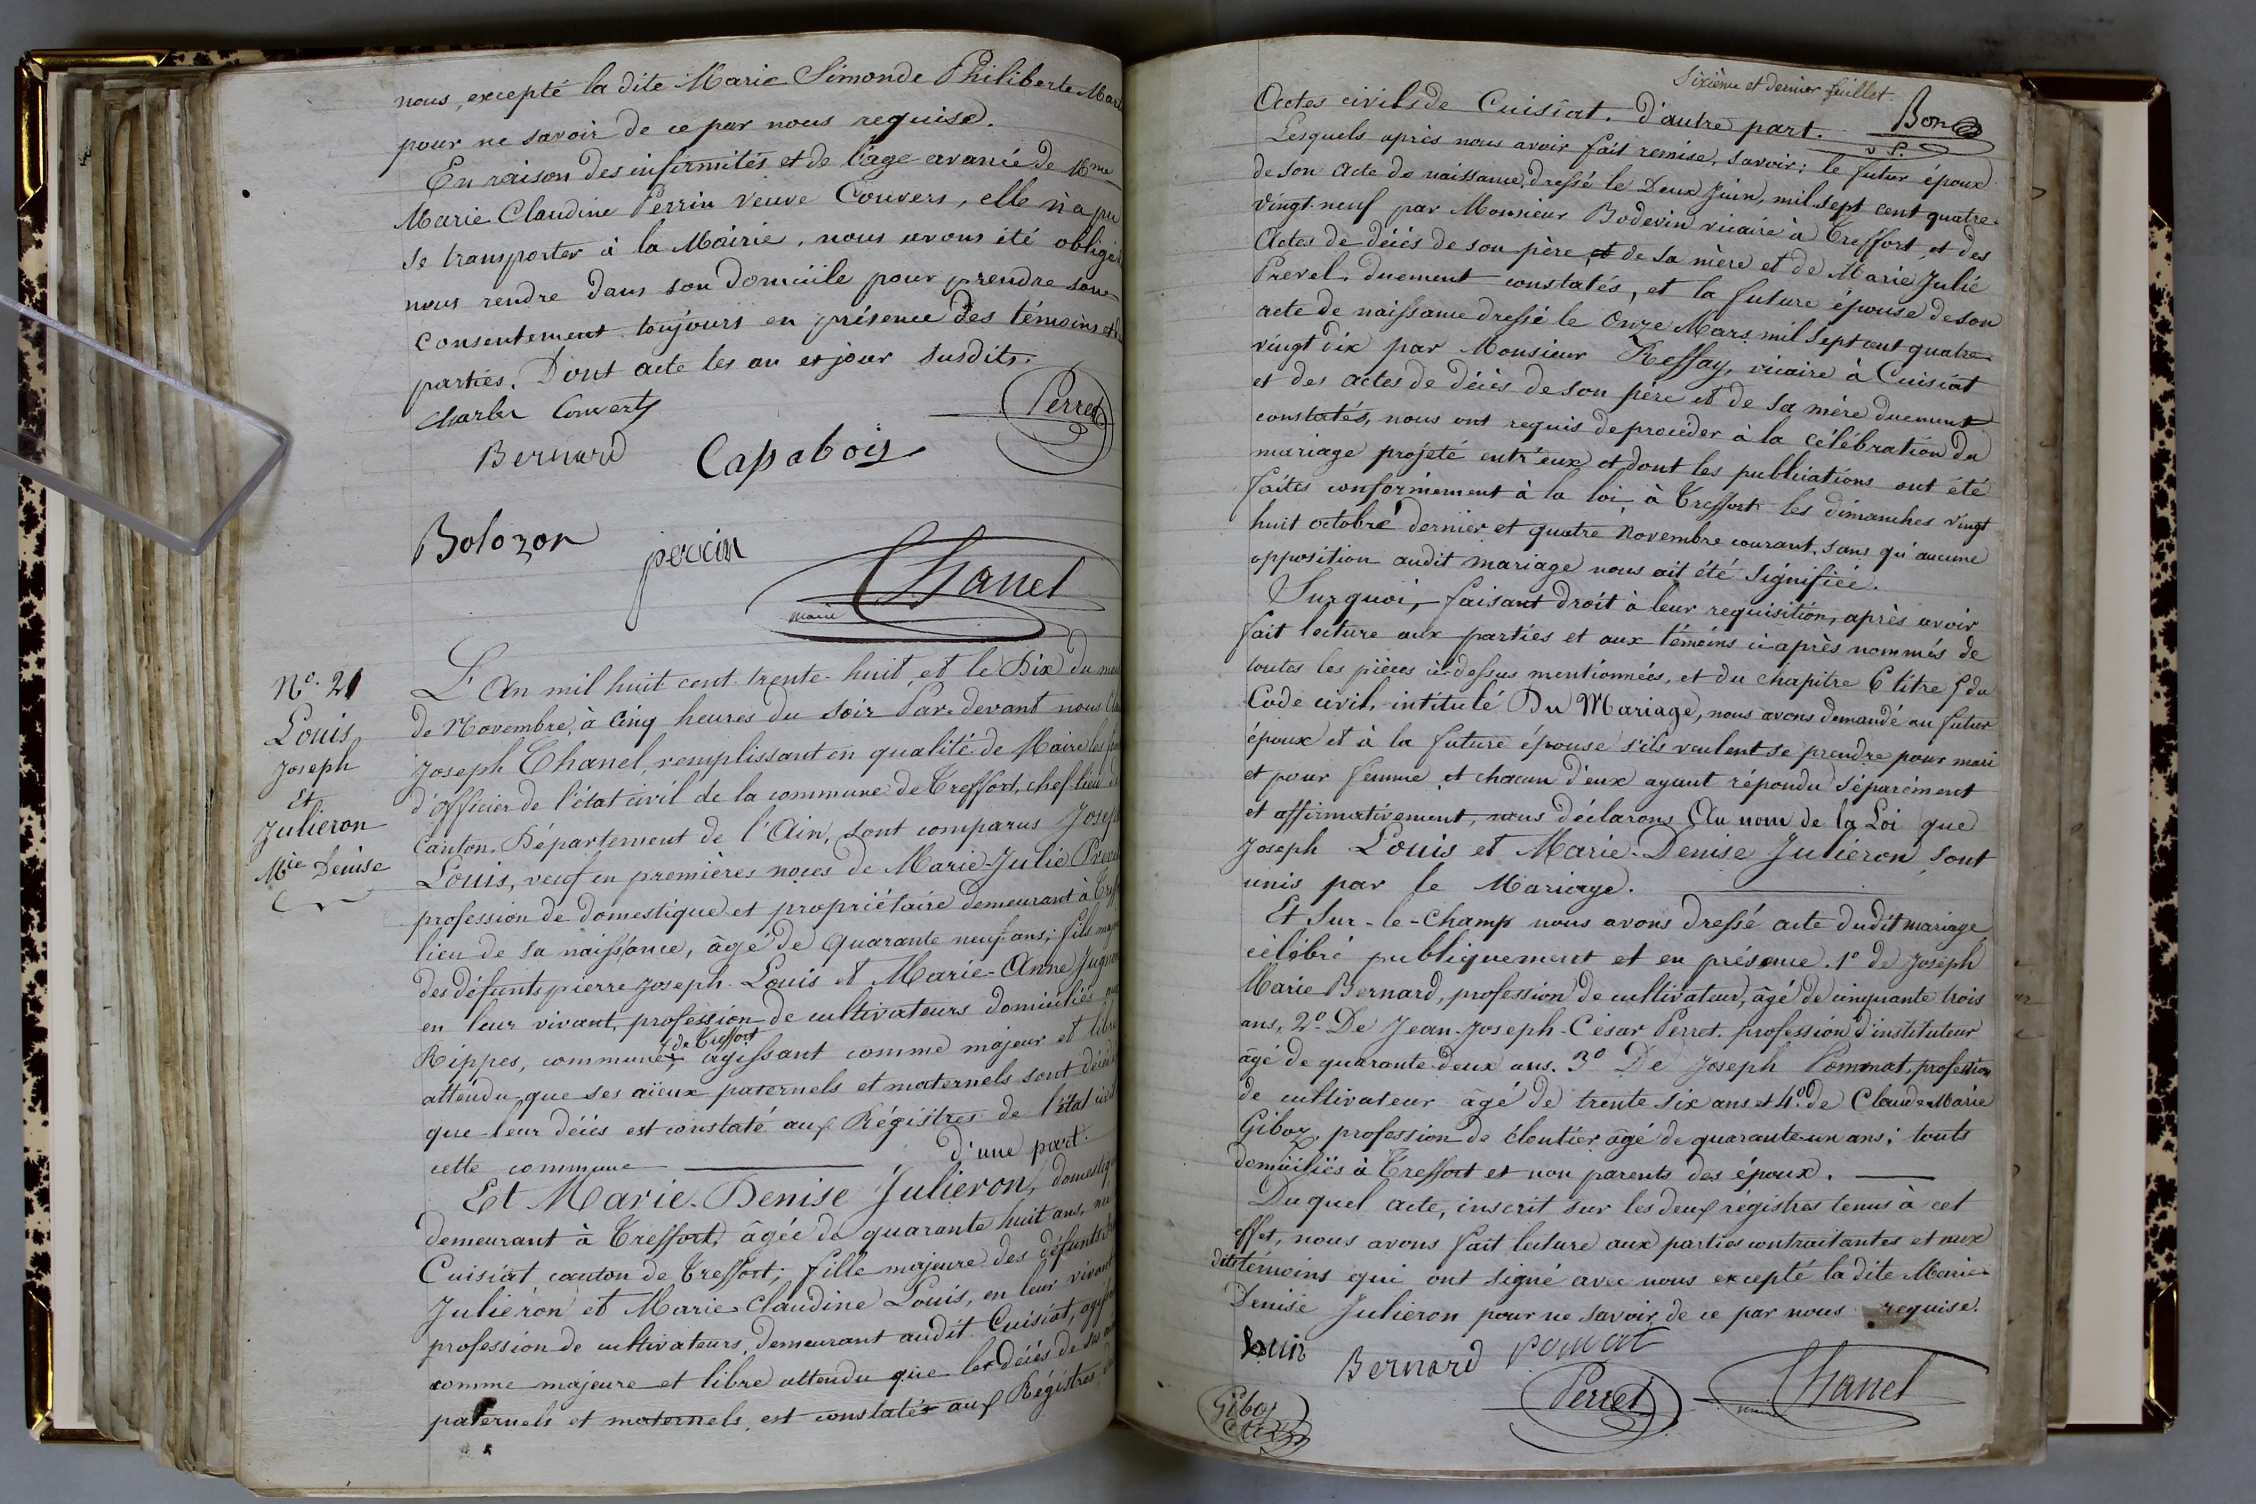 nous, excepté la dite Marie Simonde Philiberte
pour ne savoir de ce par nous requise.
En raison des infirmités et de l'age avancé de Mme
Marie Claudine Perrin veuve Convers, elle n'a pu
se transporter à la Mairie, nous avons été obligés
nous rendre dans son domicile pour prendre son
consentement toujours en présence des témoins et
parties. Dont acte les an et jour susdits.
Charles Converty
Perret
Bernard Capabois
Bolozon perrin
Chanel
maire
No. 21
Louis
Joseph
Et
Julieron
Mie Denise
L'An mil huit cent trente-huit, et le Dix du
de Novembre, à Cinq heures du soir Par-devant nous
Joseph Chanel, remplissant en qualité de Maire les
d'officier de l'état civil de la commune de Treffort, chef-lieu
Canton, Département de l'Ain, sont comparus Joseph
Louis, veuf en premières noces de Marie-Julie
profession de domestique et propriétaire demeurant à
lieu de sa naissance, âgé de Quarante neuf ans; fils
des défunts pierre Joseph Louis et Marie-Anne
en leur vivant, profession de cultivateurs domiciliés
de Treffort
Rippes, commune, agissant comme majeur et libre
attendu que ses aïeux paternels et maternels sont
que leur décès est constaté aux Régistres de l'état
cette commune d'une part.
Et Marie-Denise Julieron, domestique
demeurant à Treffort, âgée de quarante huit ans,
Cuisiat canton de Treffort; fille majeure des défunts
Julieron et Marie-Claudine Louis, en leur vivant
profession de cultivateurs, demeurant audit Cuisiat,
comme majeure et libre attendu que les décés de ses
paternels et maternels, est constatés aux Régistres
Sixième et dernier feuillet.
Actes civils de Cuisiat. d'autre part. Bon
v P.
Lesquels après nous avoir fait remise, savoir: le futur époux
de son acte de naissance, dressé le Deux Juin, mil sept cent quatre-
vingt-neuf par Monsieur Bodevin vicaire à Treffort, et des
Actes de décés de son père, et de sa mère et de Marie Julie
Prevel, duement constatés, et la future épouse de son
acte de naissance dressé le Onze Mars mil sept cent quatre-
vingt dix par Monsieur Reffay, vicaire à Cuisiat
et des actes de décès de son père et de sa mère duement
constatés, nous ont requis de procéder à la célébration du
mariage projeté entr'eux et dont les publications ont été
faites conformément à la loi, à Treffort les dimanches vingt
huit octobre dernier et quatre Novembre courant, sans qu'aucune
opposition audit mariage nous ait été signifiée.
Sur quoi, faisant droit à leur requisition, après avoir
fait lecture aux parties et aux témoins ci-après nommés de
toutes les pièces ci-dessus mentionnées, et du chapitre 6 titre 5 du
Code civil, intitulé Du Mariage, nous avons demandé au futur
époux et à la future épouse s'ils veulent se prendre pour mari
et pour femme, et chacun d'eux ayant répondu séparément
et affirmativement, nous déclarons Au nom de la Loi que
Joseph Louis et Marie-Denise Julieron, sont
unis par le Mariage.
Et sur-le-champ nous avons dressé acte dudit mariage
célébré publiquement et en présence. 1o de Joseph
Marie Bernard, profession de cultivateur, âgé de cinquante trois
ans, 2o. De Jean-Joseph-César Perret. profession d'instituteur
âgé de quarante deux ans. 3o De Joseph Pommat, profession
de cultivateur âgé de trente six ans et 4o. de Claude Marie
Giboz, profession de cloutier âgé de quarante-un ans; touts
domiciliés à Treffort et non parents des époux.
Duquel acte, inscrit sur les deux régistres tenus à cet
effet, nous avons fait lecture aux parties contractantes et aux
dits témoins qui ont signé avec nous excepté la dite Marie
Denise Julieron pour ne savoir de ce par nous requise.
Louis Bernard pomat
Giboz Perret Chanel
maire